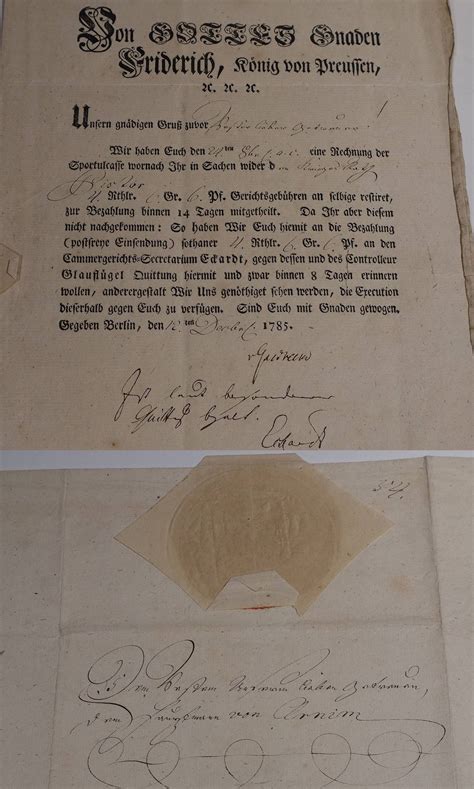 Von GOTTES Gnaden
Friderich, König von Preussen,
ꝛc. ꝛc. ꝛc.
Unsern gnädigen Gruß zuvor Vester lieber Getreuer!
Wir haben Euch den 24ten a. c. eine Rechnung der
Sportulcasse wornach Ihr in Sachen wider
4. Rthlr. 6 Gr. 6 Pf. Gerichtsgebühren an selbige restiret,
zur Bezahlung binnen 14 Tagen mitgetheilt. Da Ihr aber diesem
nicht nachgekommen: So haben Wir Euch hiemit an die Bezahlung
(postfreye Einsendung) sothaner 4. Rthlr. 6 Gr. 6 Pf. an den
Cammergerichts-Secretarium Eckardt, gegen dessen und des Controlleur
Glauflügel Quittung hiermit und zwar binnen 8 Tagen erinnern
wollen, anderergestalt Wir Uns genöthiget sehen werden, die Execution
dieserhalb gegen Euch zu verfügen. Sind Euch mit Gnaden gewogen.
Gegeben Berlin, den 12ten Decbr. 1785.
Ist laut besonderer
Quittung bezalt.
Eckardt
Dem Vesten Unserm lieben Getreuen,
dem Hauptmann von Arnim